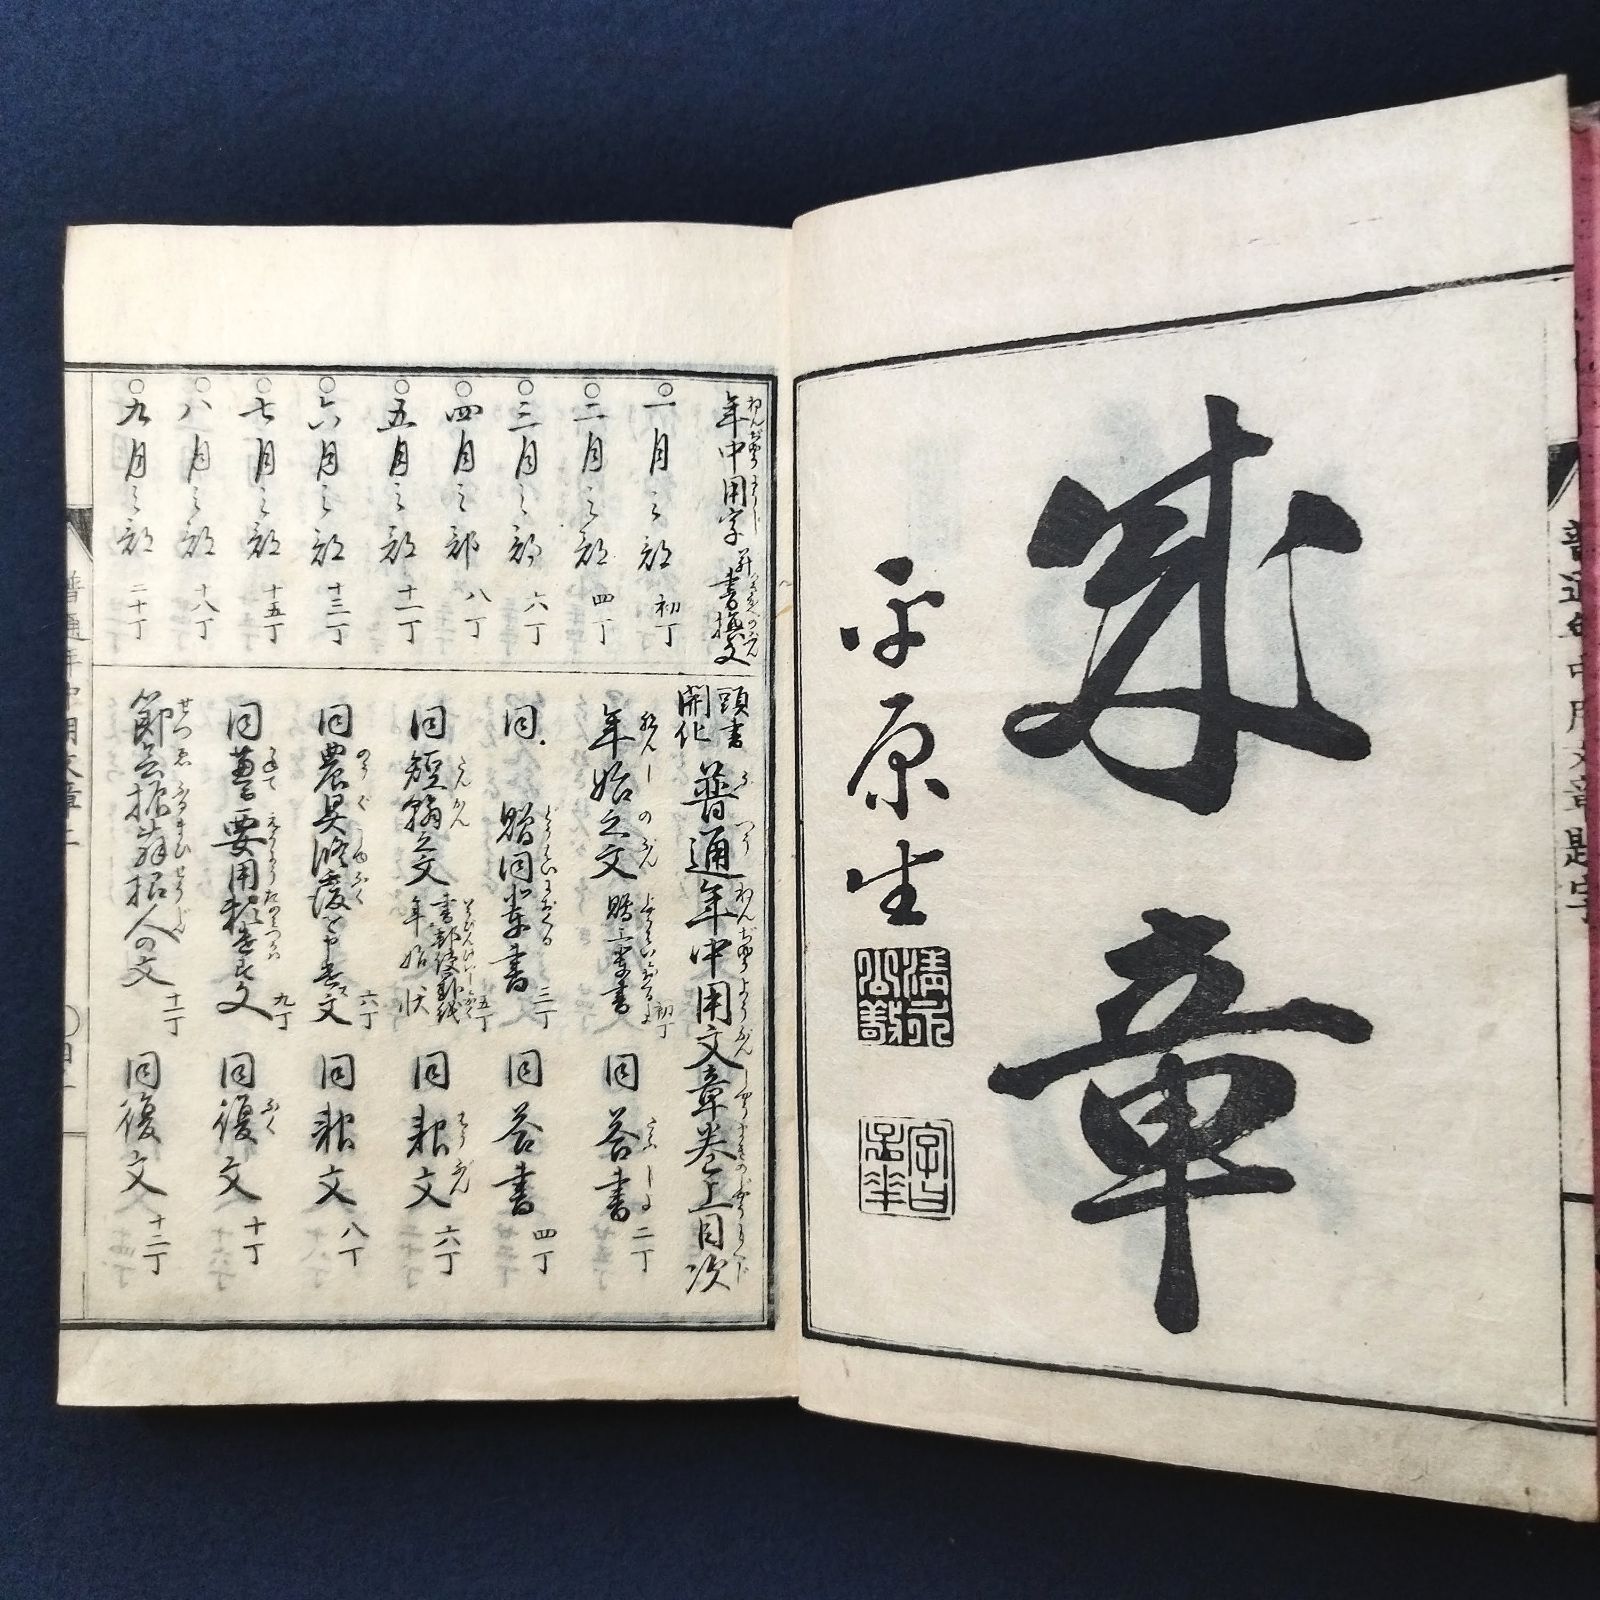 成章
平原生
普通年中用文章題字
年中用字 並書換文
〇一月之部 初丁
〇二月之部 四丁
〇三月之部 六丁
〇四月之部 八丁
〇五月之部 十一丁
〇六月之部 十三丁
〇七月之部 十五丁
〇八月之部 十八丁
〇九月之部 二十丁
頭書開化 普通年中用文章巻上目次
年始之文 贈上輩書 初丁 同答書 二丁
同 贈同輩書 三丁 同答書 四丁
同短翰之文 五丁 同報文 六丁
同農具修覆 文 六丁 同報文 八丁
同 要用 文 九丁 同復文 十丁
節会振舞招人の文 十一丁 同復文 十二丁
普通年中用文章上